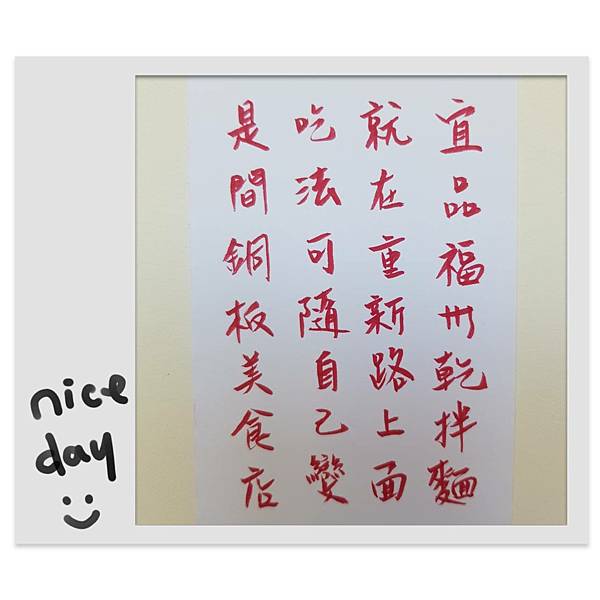 宜品福州乾拌麵
就在重新路上面
吃法可隨自己變
是間銅板美食店
nice
day